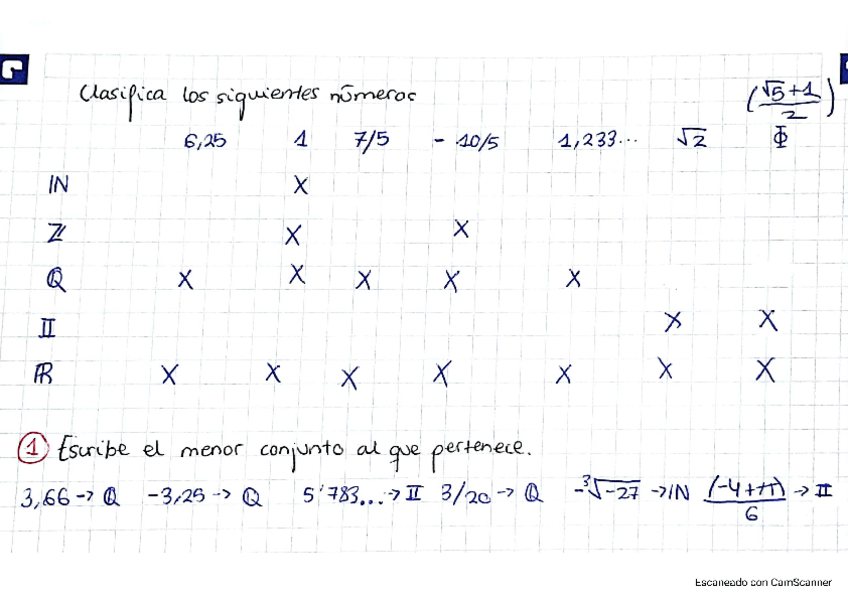 Clasifica los siguientes números (√5+1)/2
6,25 1 7/5 - 10/5 1,233... √2 Φ
ℕ X
ℤ X X
ℚ X X X X X
𝕀 X X
ℝ X X X X X X X
① Escribe el menor conjunto al que pertenece.
3,66 -> ℚ -3,25 -> ℚ 5'783... -> 𝕀 3/20 -> ℚ -³√-27 -> ℕ (-4+π)/6 -> 𝕀
Escaneado con CamScanner